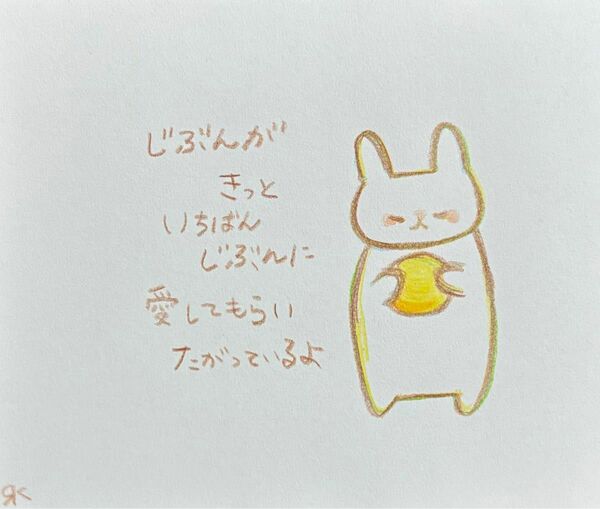 じぶんが
きっと
いちばん
じぶんに
愛してもらい
たがっているよ